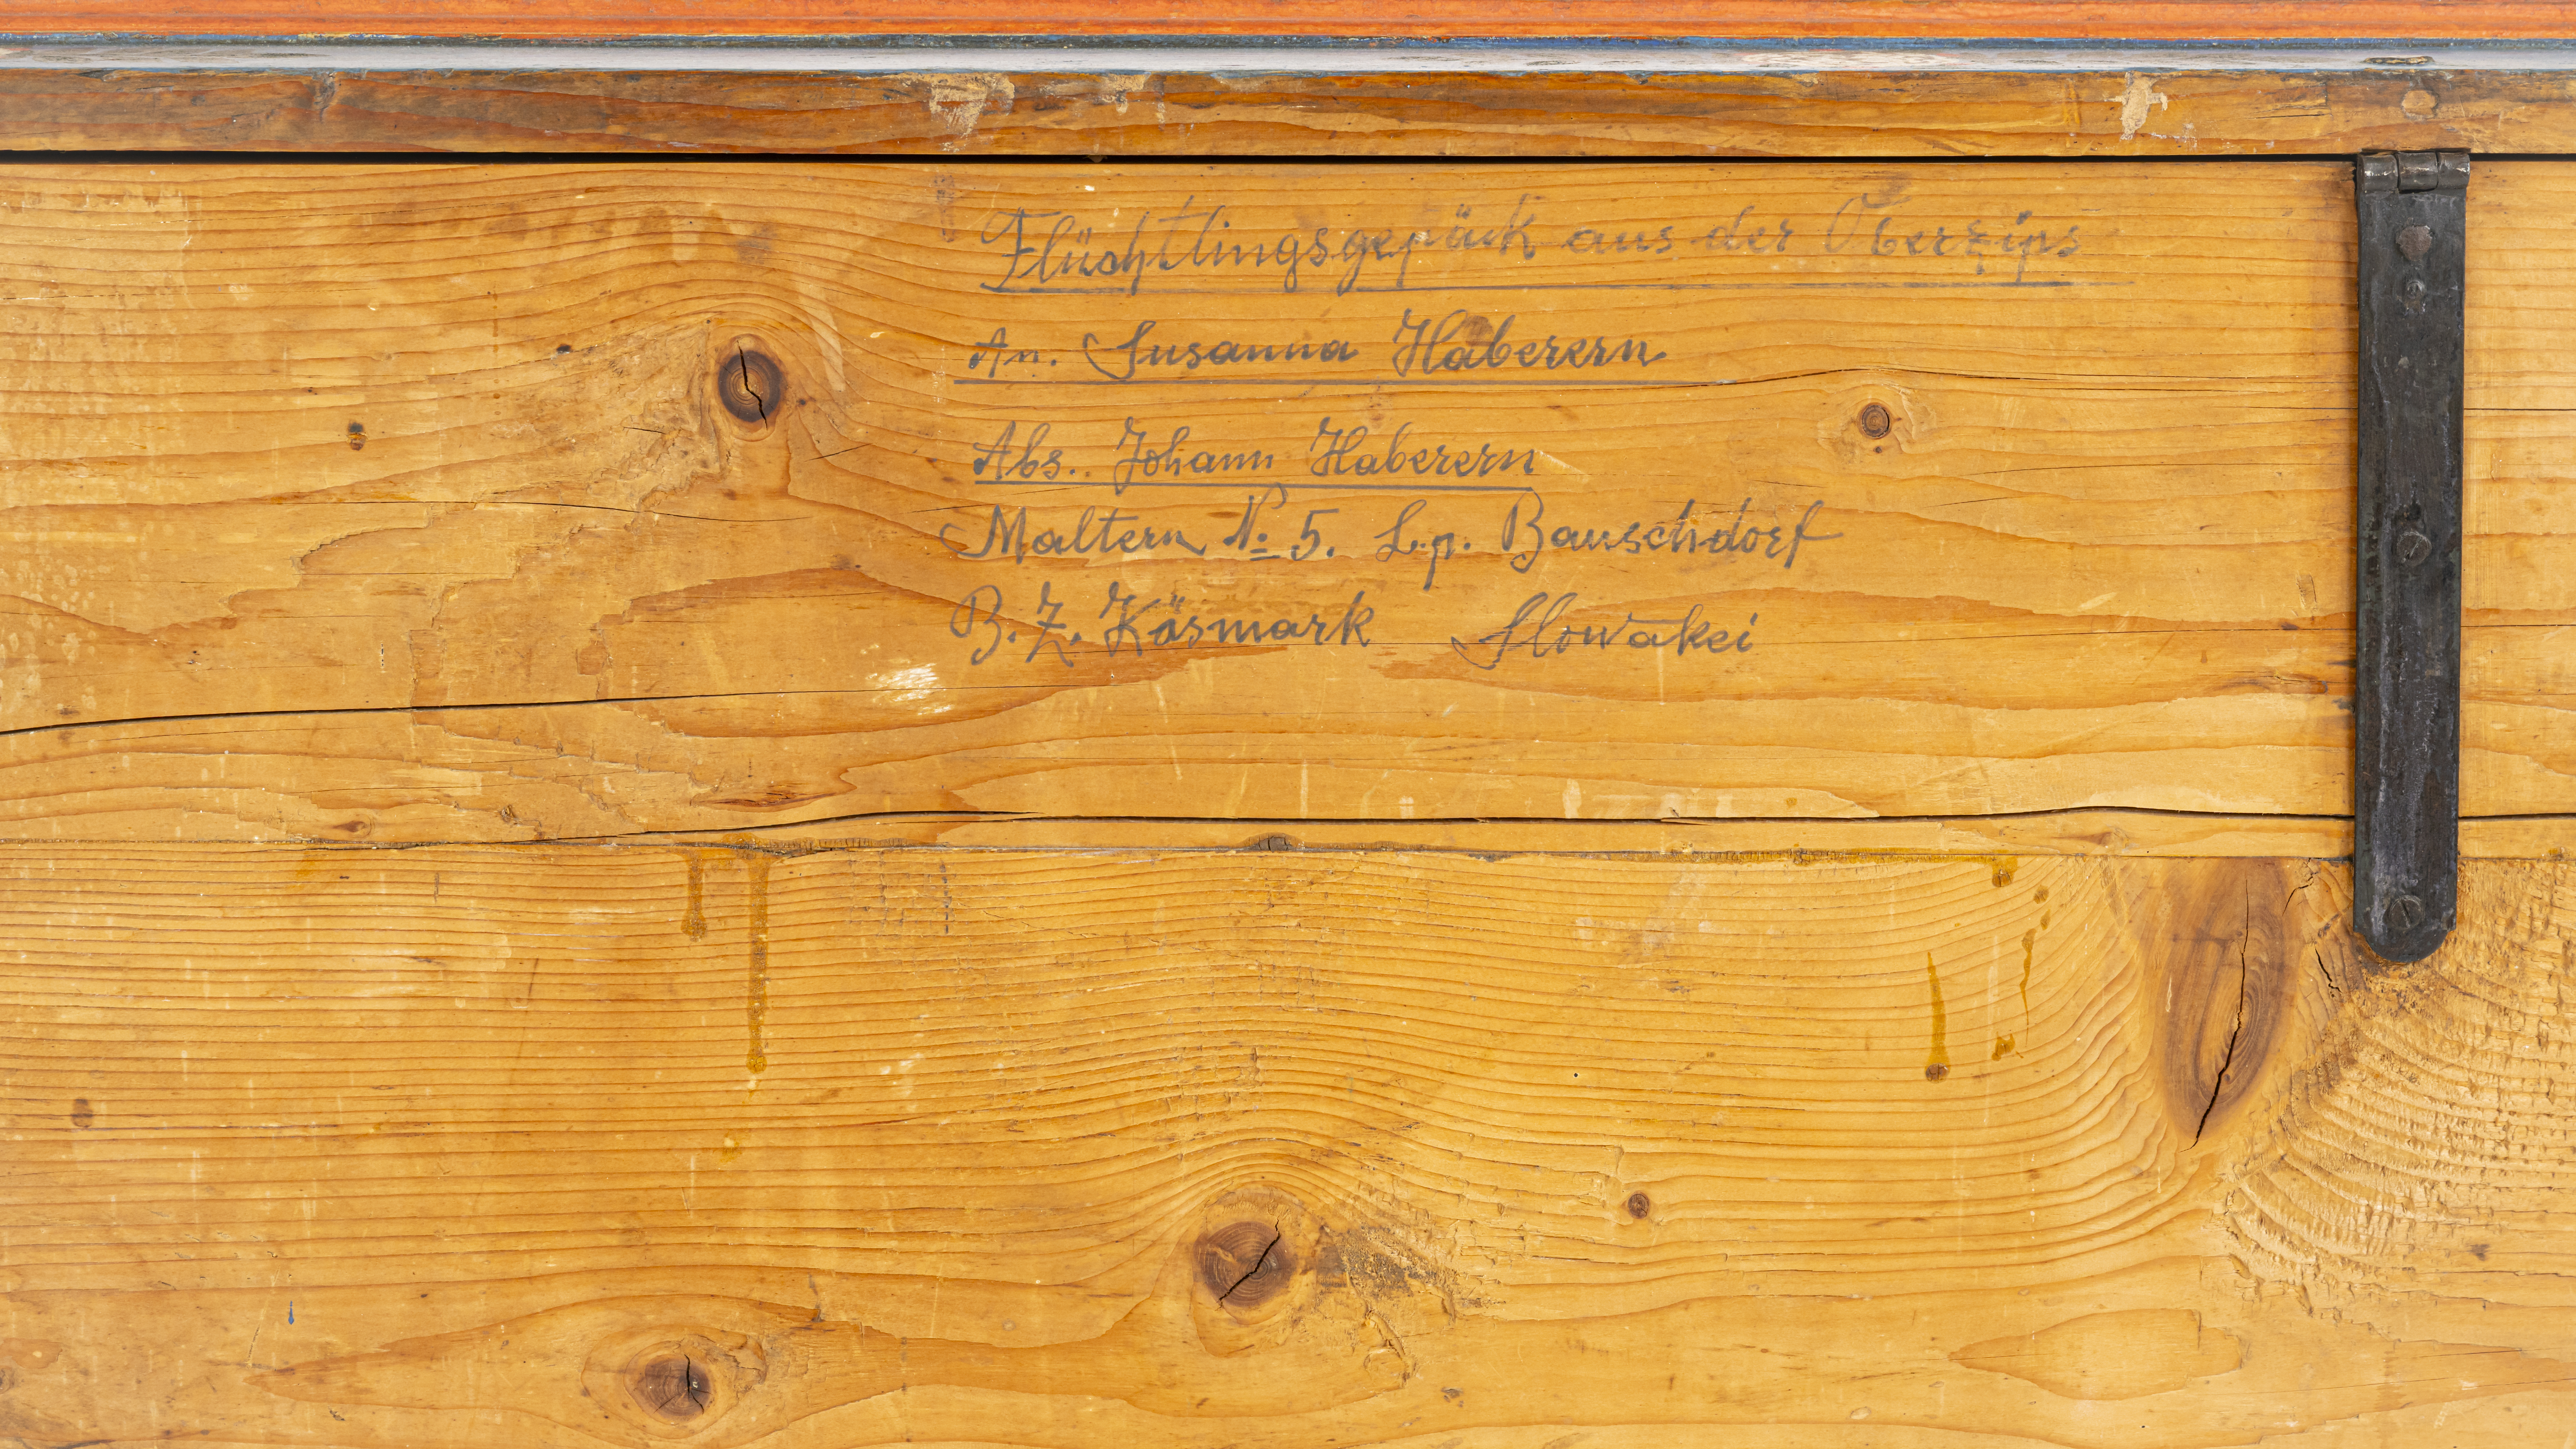 Flüchtlingsgepäck aus der Oberzips
An. Susanna Haberern
Abs. Johann Haberern
Maltern № 5. L.p. Bauschdorf
B.Z. Käsmark Slowakei